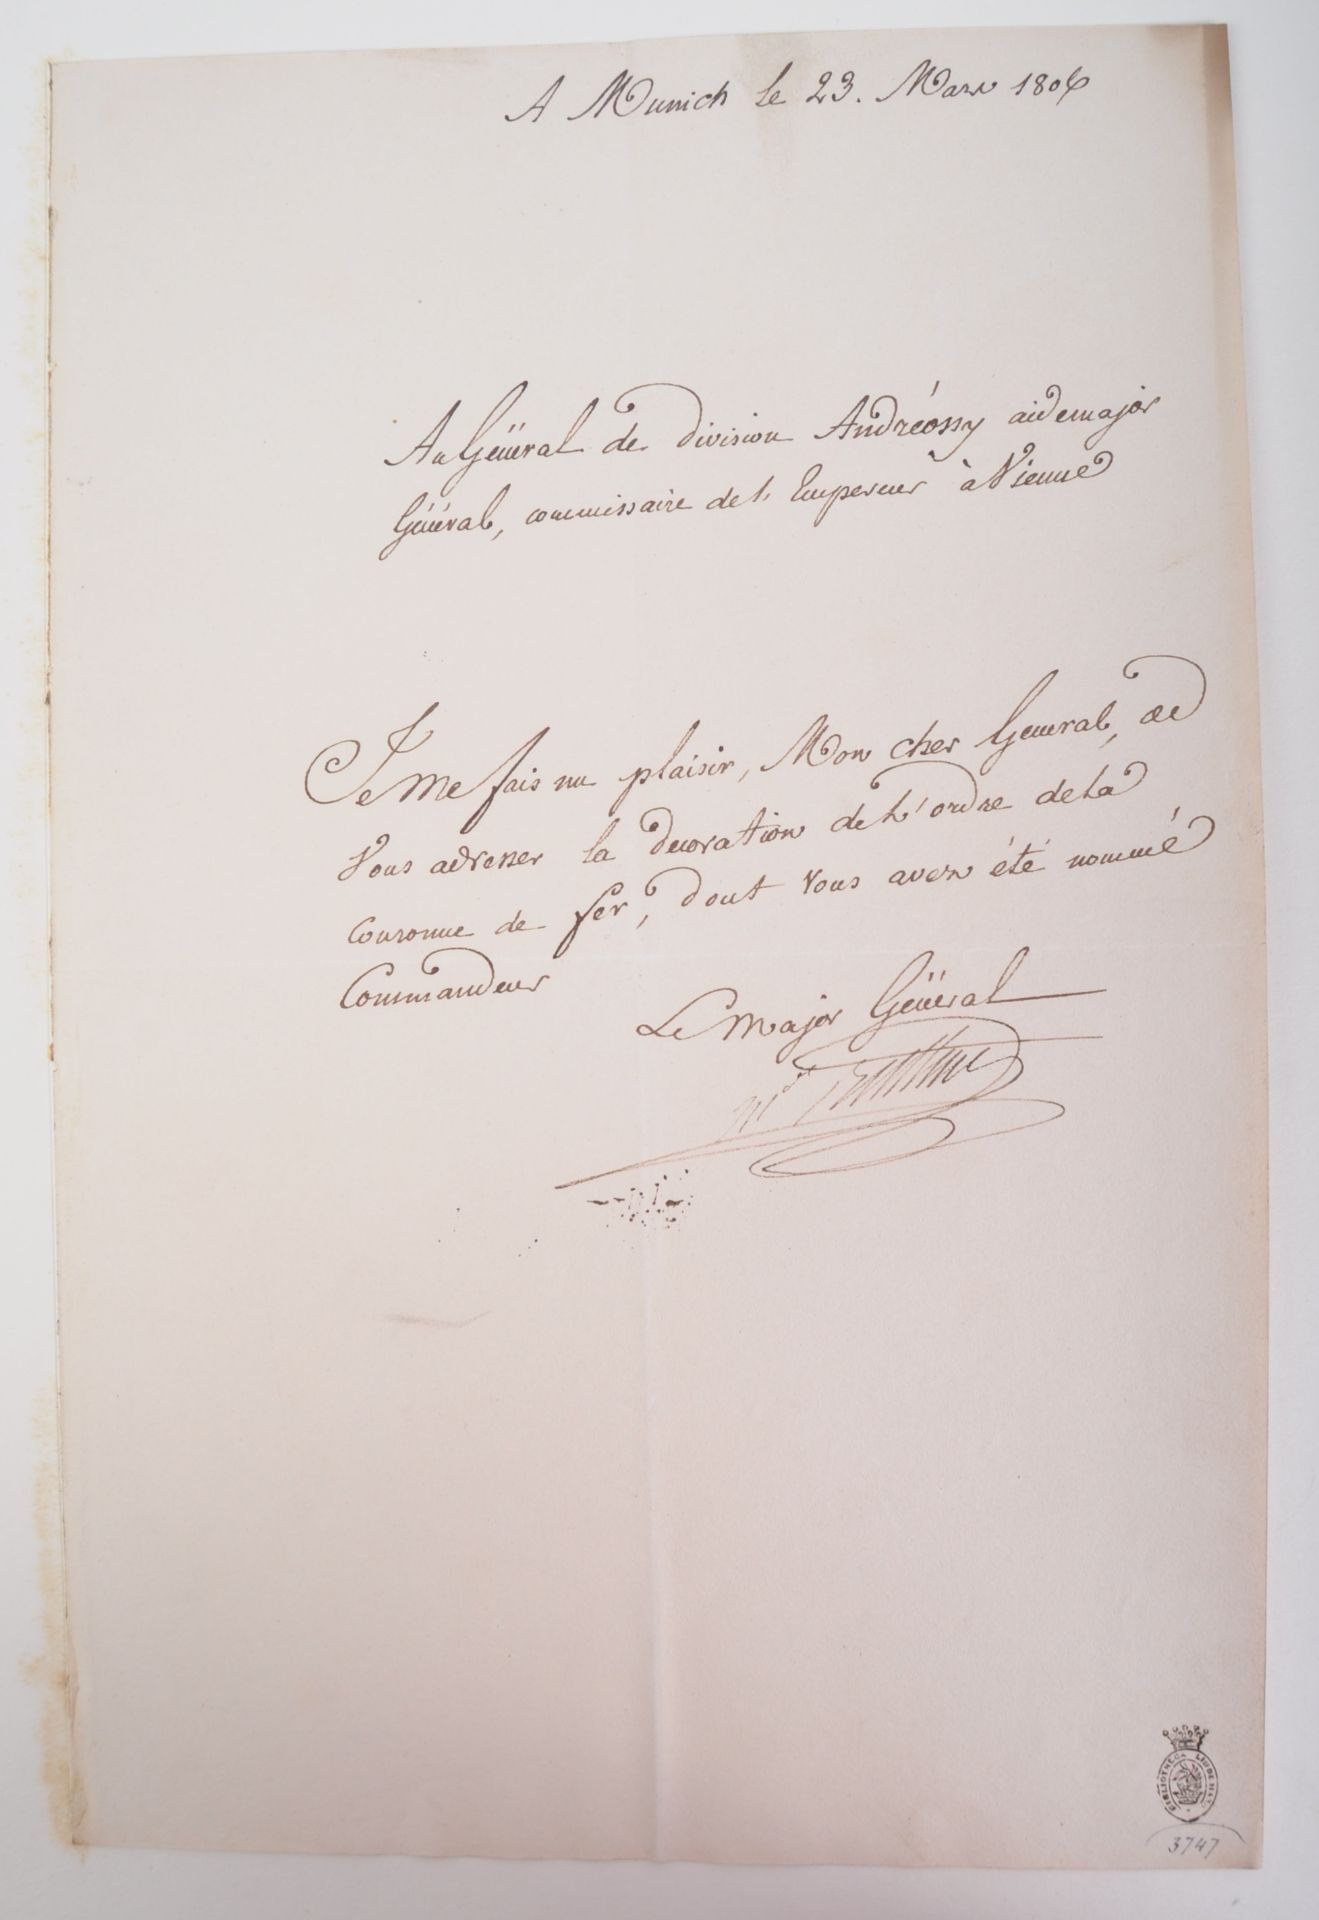 A Munich le 23. Mars 1806
Au Général de division Andréossy aidemajor
Général, commissaire de l'Empereur à Vienne
Je me fais un plaisir, Mon cher General, de
Vous adresser la decoration de l'ordre de la
Couronne de fer, dont vous avez été nommé
Commandeur
Le Major Général
Mal Berthier
BIBLIOTHECA LINDESIANA
3747